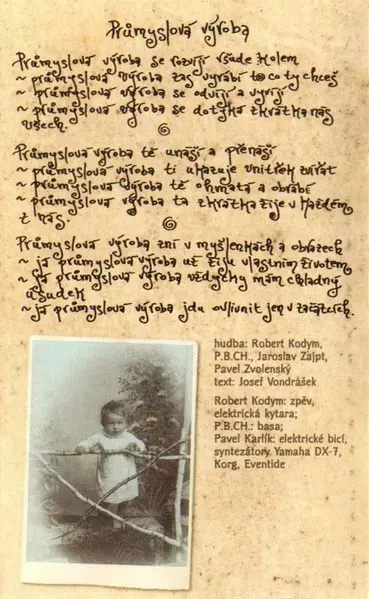 Průmyslová výroba
Průmyslová výroba se rozvíjí všude kolem
~ průmyslová výroba zas vyrábí to co ty chceš
~ průmyslová výroba se odvíjí a vyvíjí
~ průmyslová výroba se dotýká zkrátka nás
všech.
Průmyslová výroba tě unáší a přenáší
~ průmyslová výroba ti ukazuje vnitřek zvířat
~ průmyslová výroba tě ohmatá a obrábí
~ průmyslová výroba ta zkrátka žije v každém
z nás.
Průmyslová výroba zní v myšlenkách a obrazech
~ já průmyslová výroba už žiju vlastním životem
~ já průmyslová výroba vždycky mám chladný
úsudek
~ já průmyslová výroba jdu ovlivnit jen v začátcích.
hudba: Robert Kodym,
P.B.CH., Jaroslav Zajpt,
Pavel Zvolenský
text: Josef Vondrášek
Robert Kodym: zpěv,
elektrická kytara;
P.B.CH.: basa;
Pavel Karlík: elektrické bicí,
syntezátory Yamaha DX-7,
Korg, Eventide